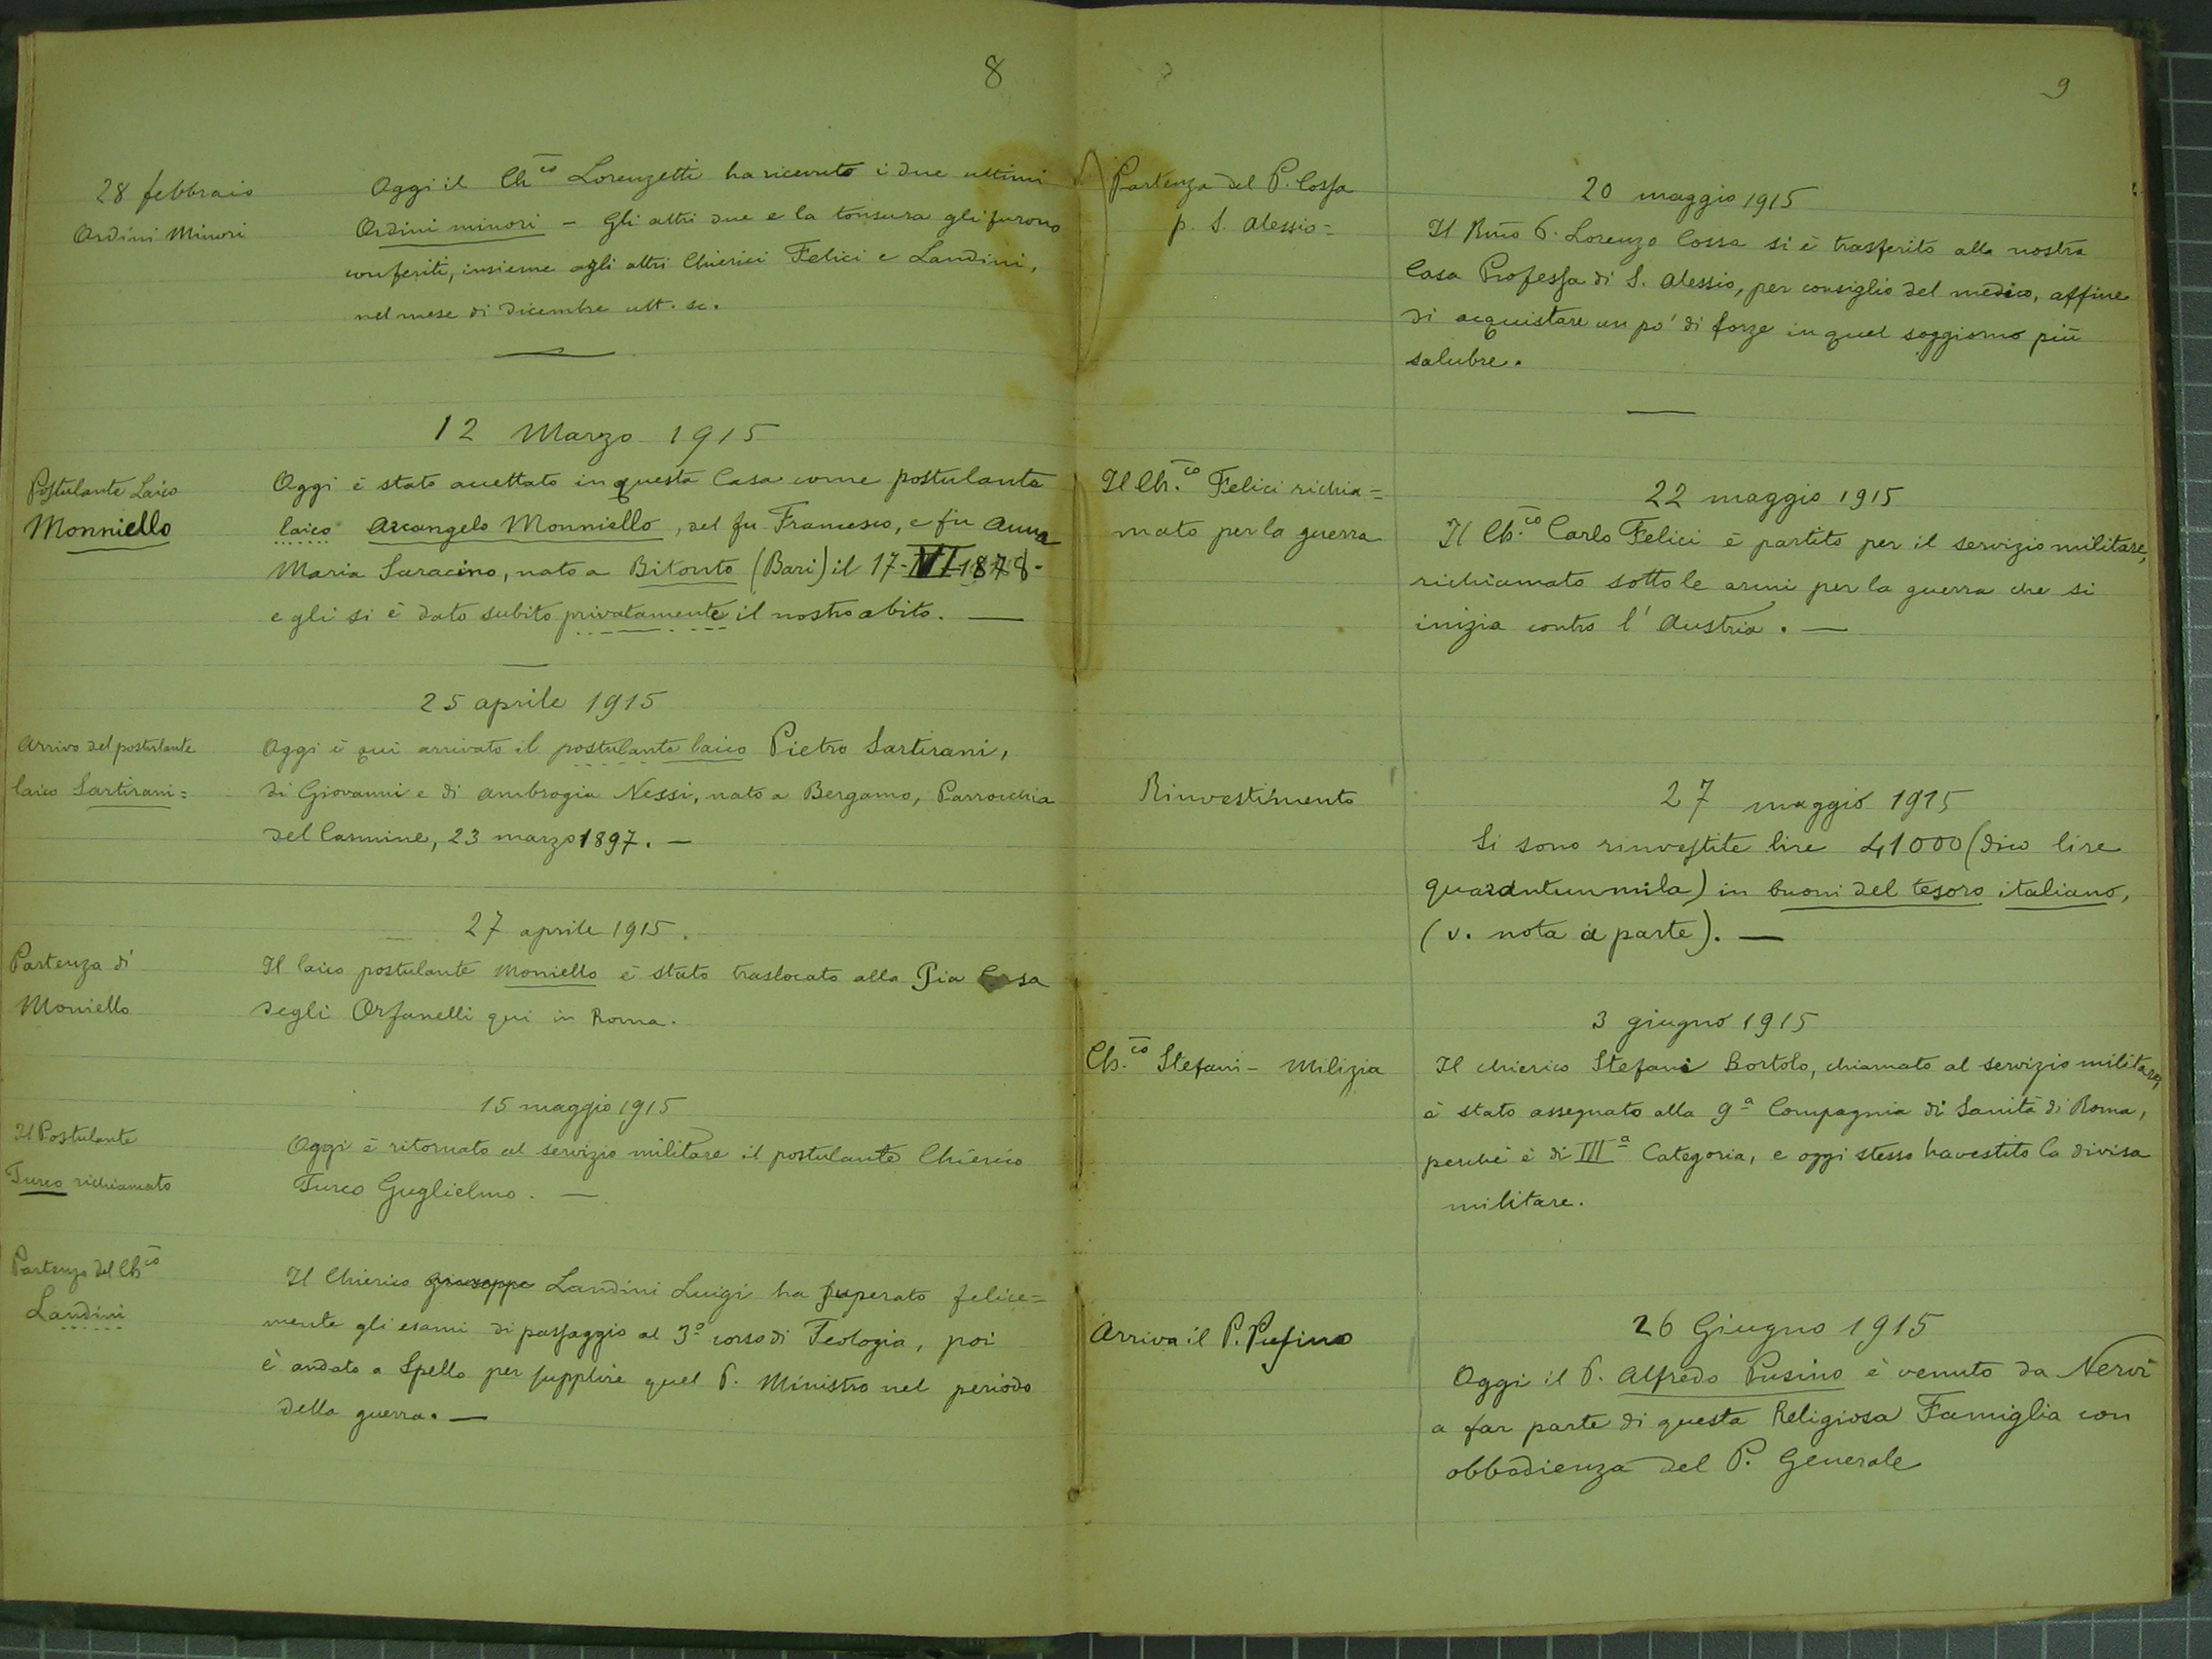 8
28 febbraio
Ordini Minori
Oggi il Ch.co Lorenzetti ha ricevuto i due ultimi
Ordini minori – Gli altri due e la tonsura gli furono
conferiti, insieme agli altri Chierici Felici e Landini,
nel mese di dicembre ult. sc.
12 Marzo 1915
Postulante Laico
Monniello
Oggi è stato accettato in questa Casa come postulante
laico Arcangelo Monniello, del fu Francesco, e fu Anna
Maria Saracino, nato a Bitonto (Bari) il 17-VI-1878-
e gli si è dato subito privatamente il nostro abito. —
25 aprile 1915
Arrivo del postulante
laico Sartirani=
Oggi è qui arrivato il postulante laico Pietro Sartirani,
di Giovanni e di Ambrogia Nessi, nato a Bergamo, Parrocchia
del Carmine, 23 marzo 1897. —
27 aprile 1915.
Partenza di
Moniello
Il laico postulante Moniello è stato traslocato alla Pia Casa
degli Orfanelli qui in Roma.
15 maggio 1915
Il Postulante
Turco richiamato
Oggi è ritornato al servizio militare il postulante Chierico
Turco Guglielmo. —
Partenza del Ch.co
Landini
Il Chierico Giuseppe Landini Luigi ha superato felice=
mente gli esami di passaggio al 3º corso di Teologia, poi
è andato a Spello per supplire quel P. Ministro nel periodo
della guerra. —
9
Partenza del P. Cossa
p. S. Alessio=
20 maggio 1915
Il Rmo P. Lorenzo Cossa si è trasferito alla nostra
Casa Professa di S. Alessio, per consiglio del medico, affine
di acquistare un po' di forze in quel soggiorno più
salubre.
Il Ch.co Felici richia=
mato per la guerra
22 maggio 1915
Il Ch.co Carlo Felici è partito per il servizio militare,
richiamato sotto le armi per la guerra che si
inizia contro l'Austria. —
Rinvestimento
27 maggio 1915
Si sono rinvestite lire 41000 (dico lire
quarantunmila) in buoni del tesoro italiano,
(v. nota a parte). —
3 giugno 1915
Ch.co Stefani – Milizia
Il chierico Stefani Bortolo, chiamato al servizio militare,
è stato assegnato alla 9ª Compagnia di Sanità di Roma,
perchè è di IIIª Categoria, e oggi stesso ha vestito la divisa
militare.
Arriva il P. Pusino
26 Giugno 1915
Oggi il P. Alfredo Pusino è venuto da Nervi
a far parte di questa Religiosa Famiglia con
obbedienza del P. Generale